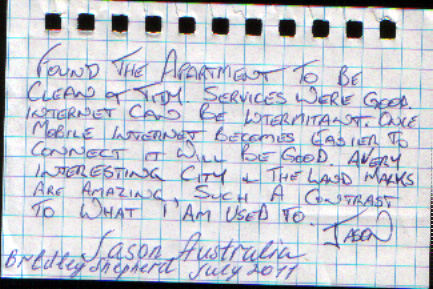 FOUND THE APARTMENT TO BE
CLEAN & TIDY. SERVICES WERE GOOD.
INTERNET CAN BE INTERMITANT. ONCE
MOBILE INTERNET BECOMES EASIER TO
CONNECT IT WILL BE GOOD. A VERY
INTERESTING CITY & THE LAND MARKS
ARE AMAZING, SUCH A CONTRAST
TO WHAT I AM USED TO.
JASON
Jason, Australia
Bradley Shepherd July 2011